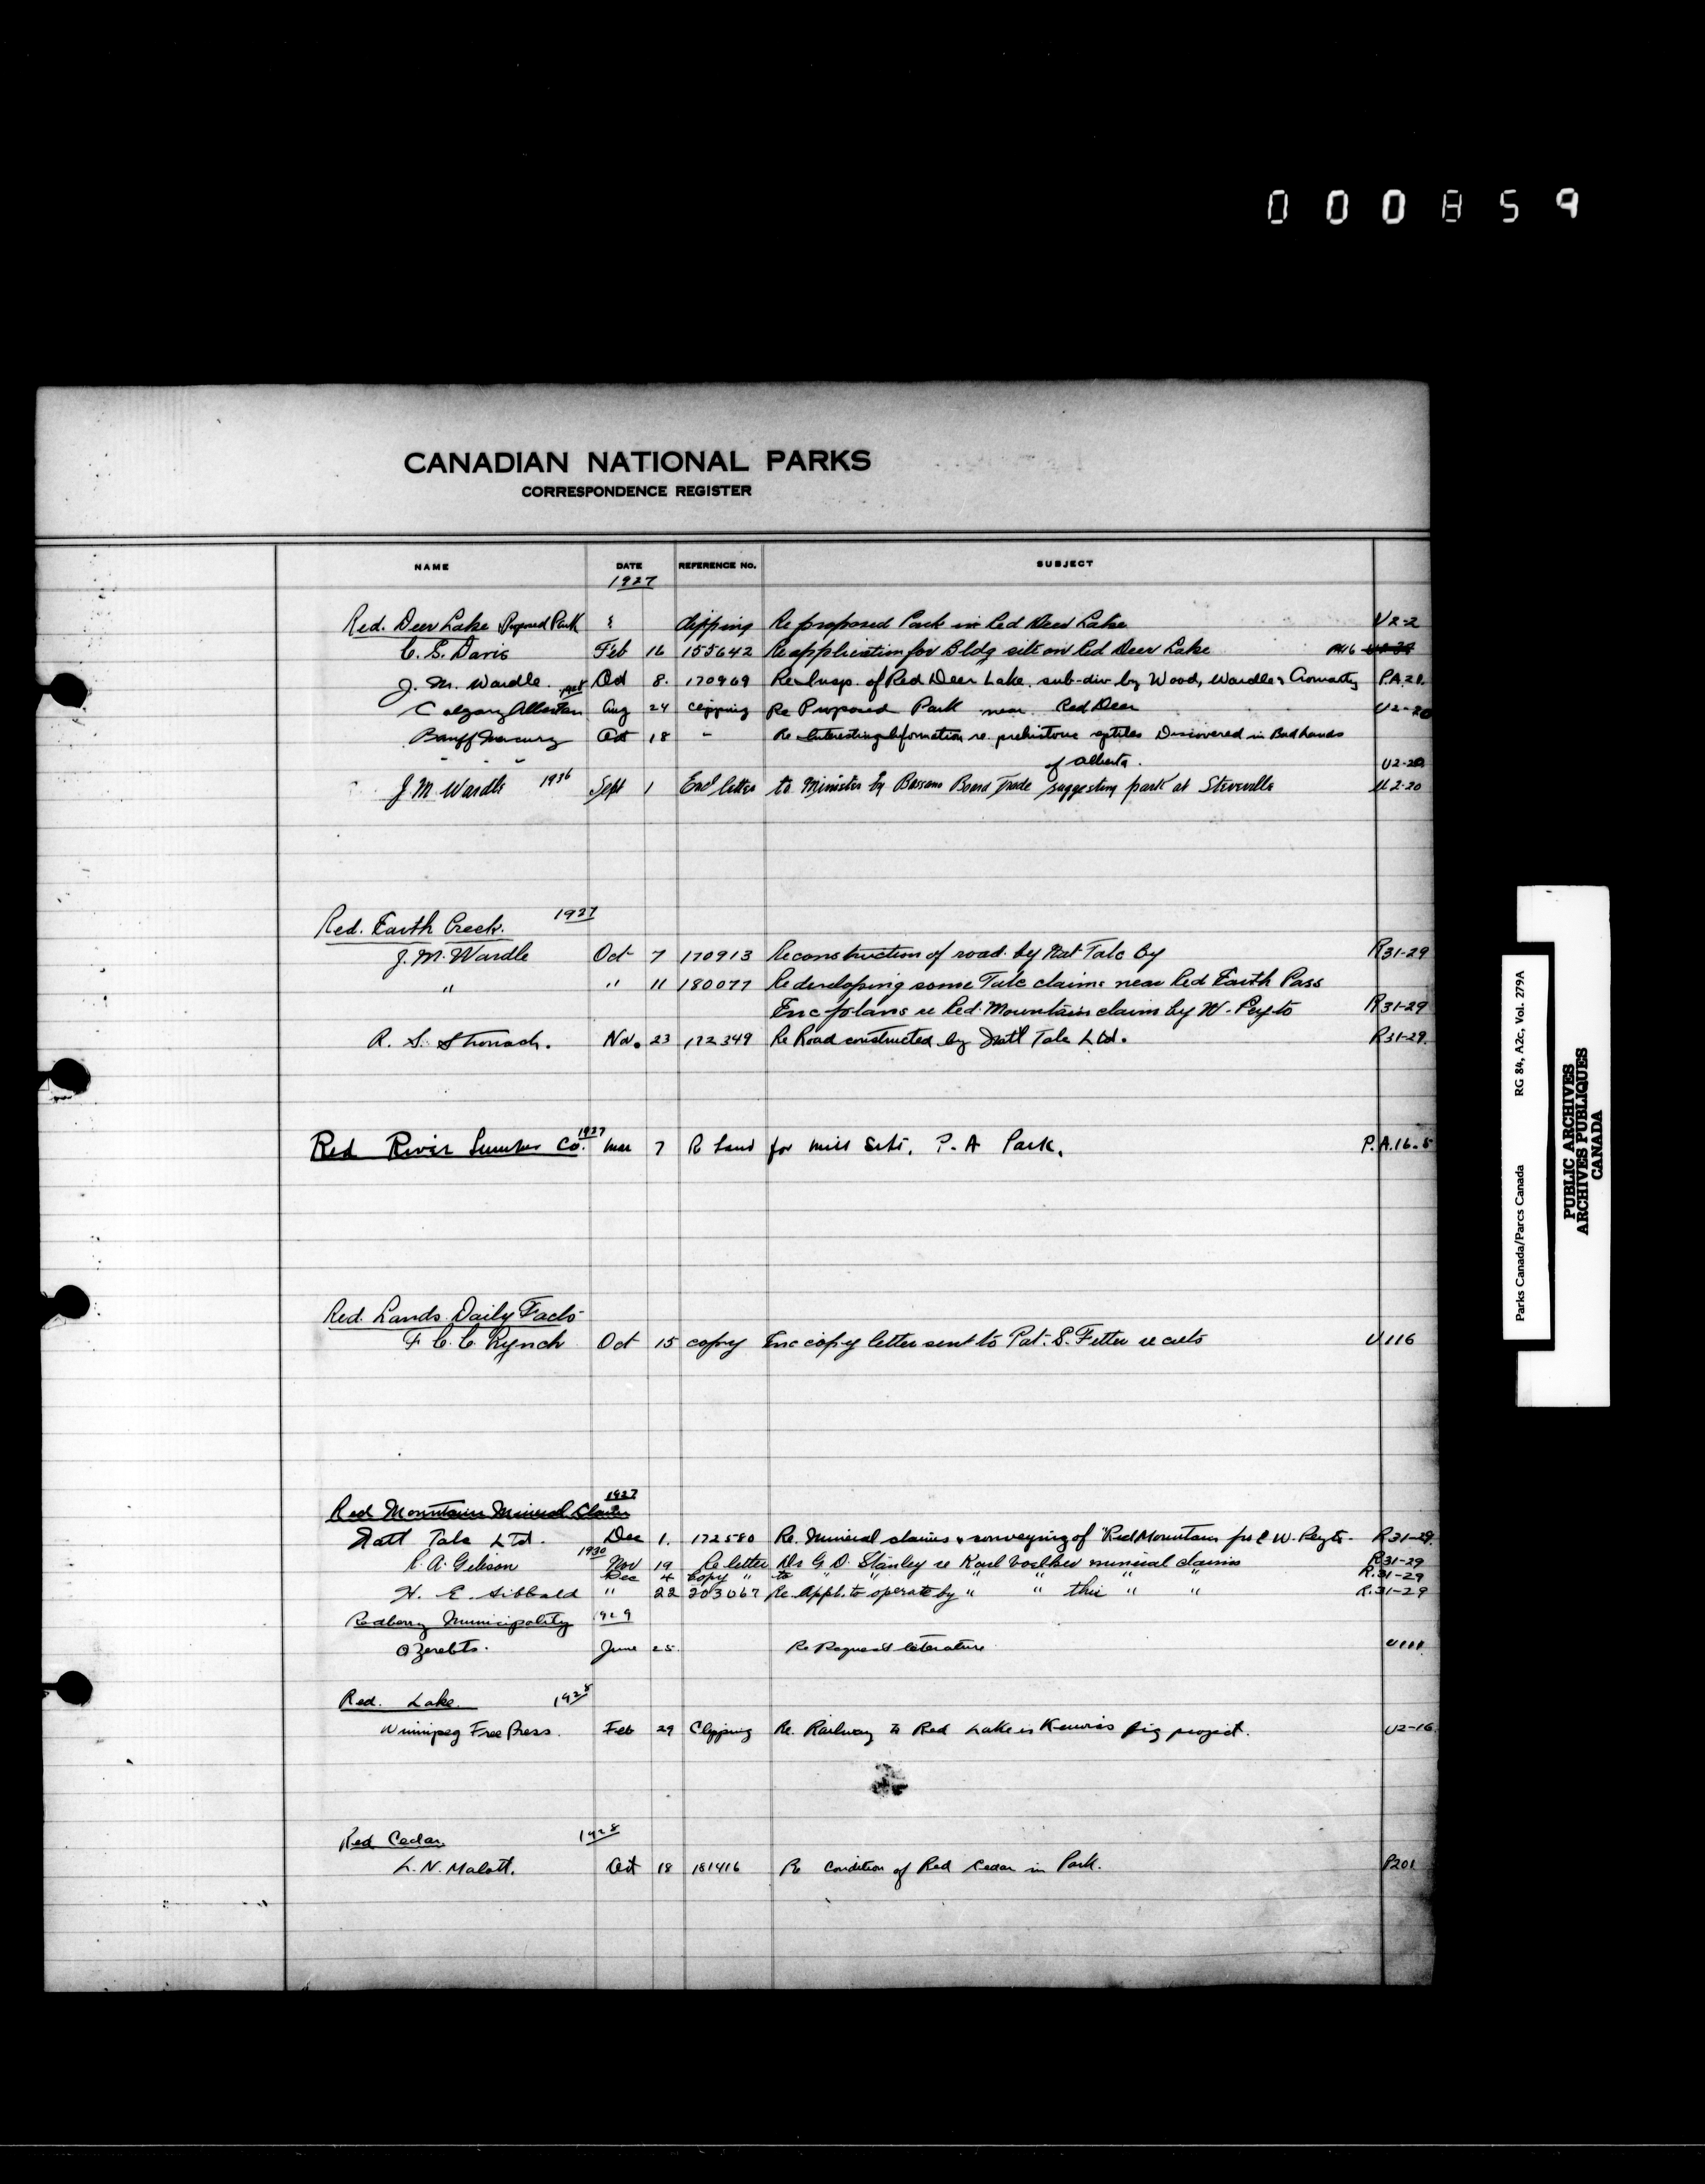 000859
CANADIAN NATIONAL PARKS
CORRESPONDENCE REGISTER
NAME DATE REFERENCE No. SUBJECT
1927
Red. Deer Lake Proposed Park clipping Re proposed Park in Red Deer Lake U2-2
C. S. Davis Feb 16 155642 Re application for Bldg site on Red Deer Lake
J. M. Wardle. Oct 8. 170969 Re Insp. of Red Deer Lake. sub-div. by Wood, Wardle & Cromarty P.A.21.
Calgary Albertan Aug 24 clipping Re Proposed Park near Red Deer U2-20
Banff Mercury Oct 18 - Re Interesting Information re. prehistoric reptiles Discovered in Bad Lands
of Alberta. U2-20
J M Wardle 1936 Sept 1 Encl letter to Minister by Bassano Board Trade suggesting park at Steveville U2-20
Red. Earth Creek. 1927
J. M. Wardle Oct 7 170913 Re construction of road by Nat Talc Co R31-29
" " 11 180077 Re developing some Talc claims near Red Earth Pass
Enc plans re Red Mountain claim by W. Peyto R31-29
R. S. Stronach. Nov. 23 172349 Re Road constructed by Nat'l Talc Ltd. R31-29.
Red River Lumber Co. 1927 Mar 7 R Land for mill site, P. A Park. P.A.16-5
Red Lands Daily Facts
F. C. C. Lynch Oct 15 copy Enc copy letter sent to Pat. S. Fetter re cuts U116
1927
Red Mountain Mineral Claim
Natl Talc Ltd. Dec 1. 172580 Re. Mineral claims & conveying of "Red Mountain W. Peyto. R31-29.
R. A. Gibson 1930 Nov 19 Re letter Dr G. D. Stanley re Karl Voelker mineral claims R31-29
Dec 4 Copy " to " " " " " R.31-29
H. E. Sibbald " 22 203067 Re Appl. to operate by " " this " " R.31-29
Redberry Municipality 1929
O Zerebts. June 25. Re Request literature U111
Red. Lake. 1928
Winnipeg Free Press. Feb 29 Clipping Re. Railway to Red Lake is Kenora's big project. U2-16
Red Cedar. 1928
L. N. Malott. Oct 18 181416 Re Condition of Red Cedar in Park. P201
Parks Canada/Parcs Canada RG 84, A2c, Vol. 279A
PUBLIC ARCHIVES
ARCHIVES PUBLIQUES
CANADA